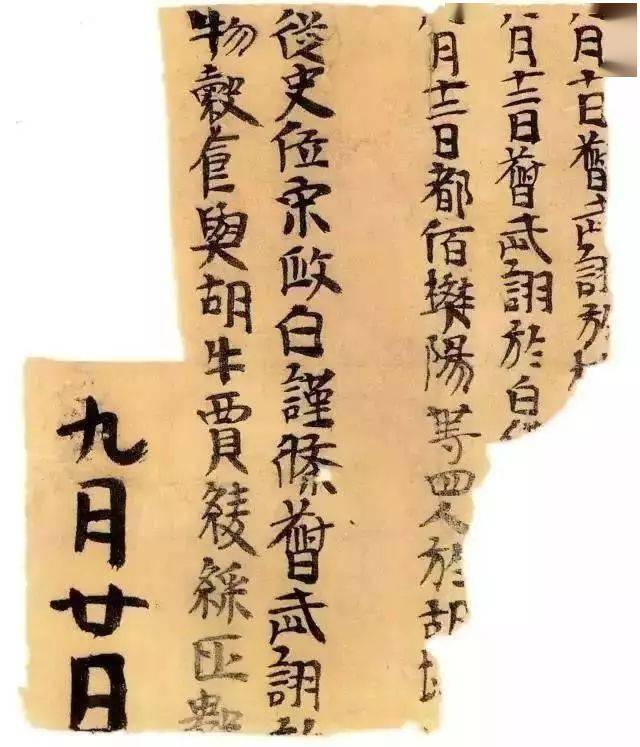 月十日曹武詡於
月十二日曹武詡於白
月十二日都佰樊陽等四人於胡
從史位宋政白謹條曹武詡
物穀食與胡牛賈綾綵匹數
九月廿日